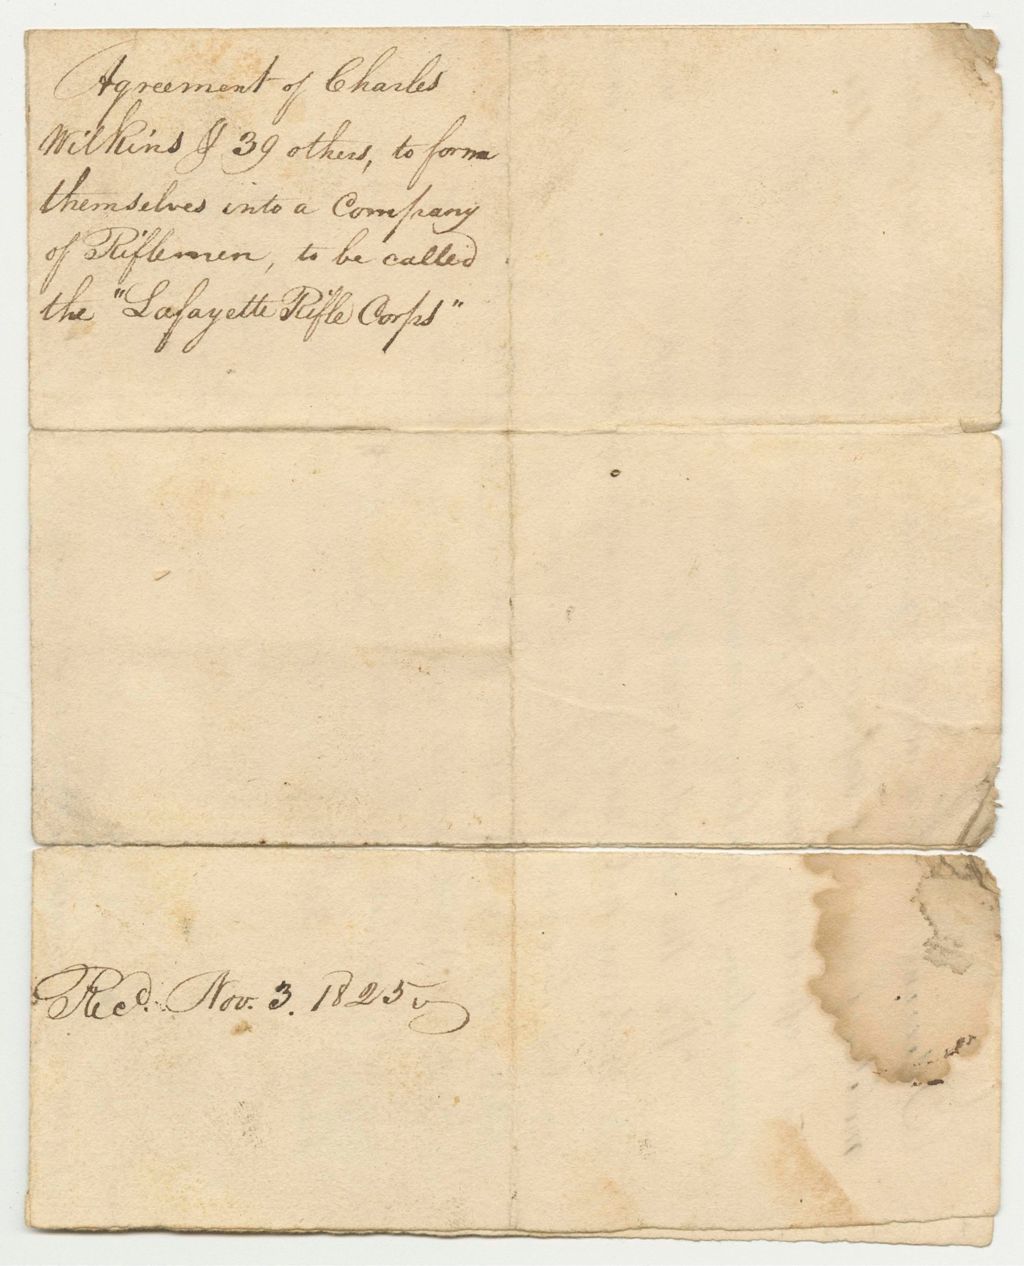 Agreement of Charles
Wilkins & 39 others, to form
themselves into a Company
of Riflemen, to be called
the "Lafayette Rifle Corps"
Recd. Nov. 3. 1825